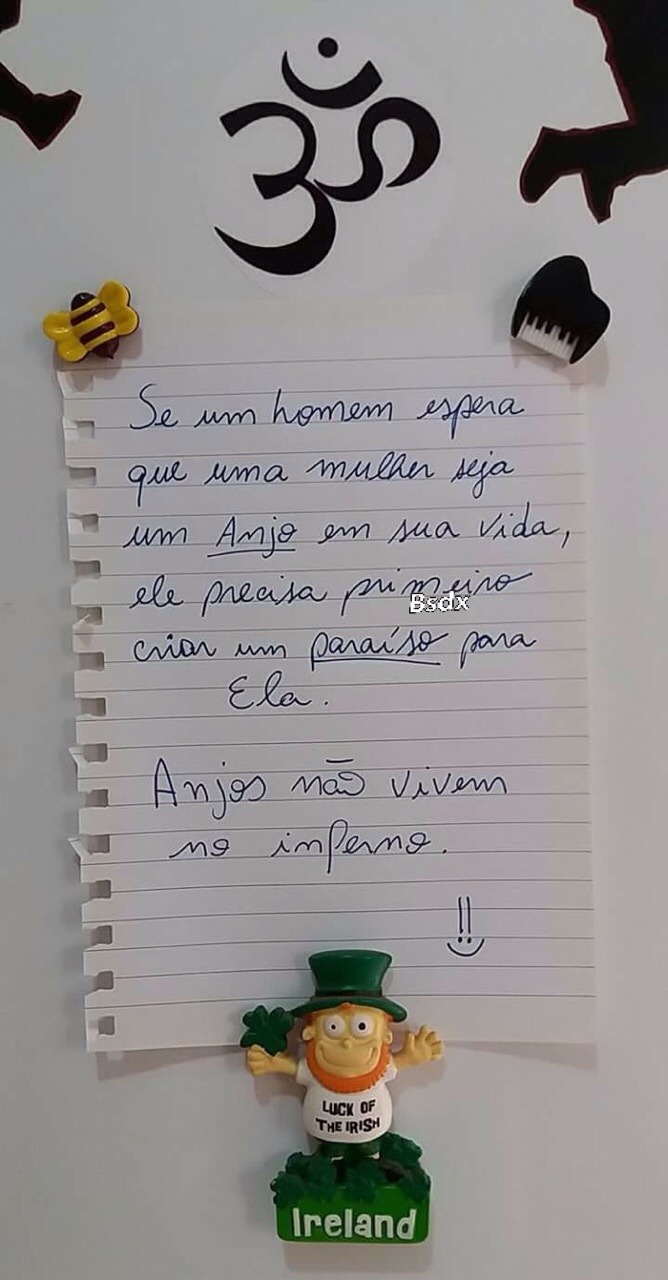 ॐ
Se um homem espera
que uma mulher seja
um Anjo em sua vida,
ele precisa primeiro
Bsdx
criar um paraíso para
Ela.
Anjos não vivem
no inferno.
!!
LUCK OF
THE IRISH
Ireland